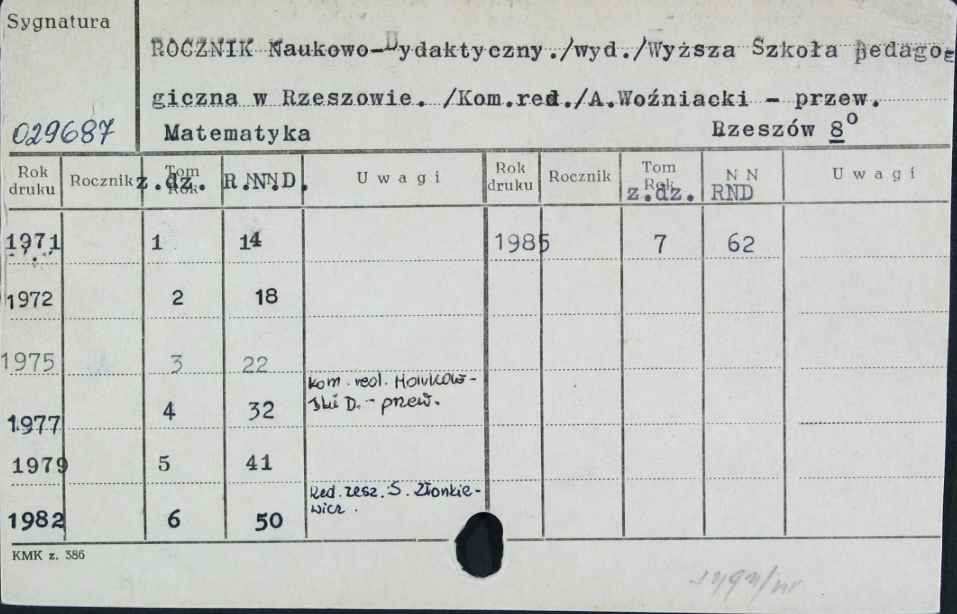 Sygnatura
ROCZNIK Naukowo-Dydaktyczny./wyd./Wyższa Szkoła pedagog
giczna w Rzeszowie. /Kom.red./A.Woźniacki - przew.
029687 Matematyka Rzeszów 8°
Rok druku Rocznik Tom Rok z.dz. R.N.N.D. Uwagi Rok druku Rocznik Tom Rok z.dz. N N RND Uwagi
1971 1 14 1985 7 62
1972 2 18
1975 3 22
kom. red.
1977 4 32 D. - przew.
1979 5 41
Red. zesz. S. Złonkie-
wicz.
1982 6 50
KMK z. 386